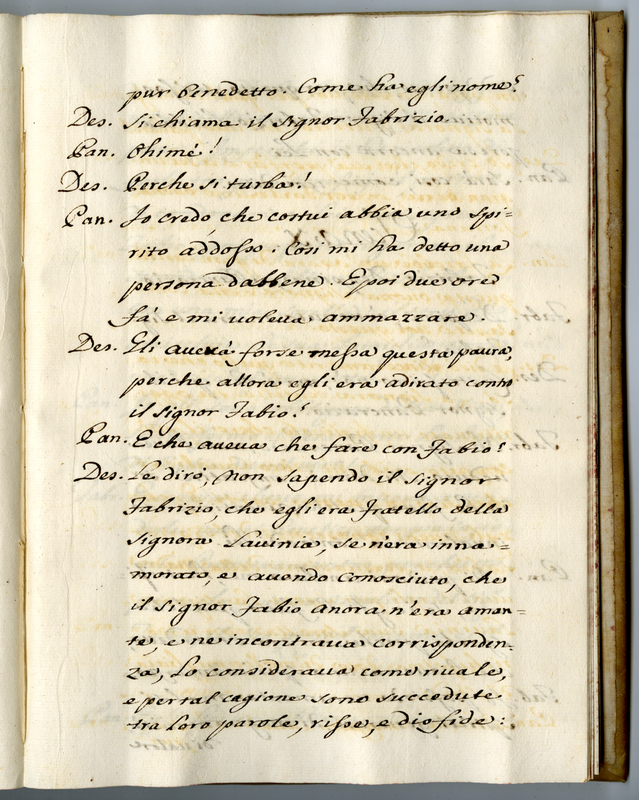 pur benedetto. Come ha egli nome?
Des. Si chiama il Signor Fabrizio
Pan. Ohimé!
Des. Perche si turba?
Pan. Io credo che costui abbia uno spi=
rito addosso. Cosi mi ha detto una
persona dabbene. E poi due ore
fà e mi voleva ammazzare.
Des. Gli averà forse messa questa paura,
perche allora egli era adirato contro
il Signor Fabio?
Pan. E che aveva che fare con Fabio?
Des. Le dirò, non sapendo il Signor
Fabrizio, che egli era fratello della
Signora Lavinia, se n'era inna=
morato, e avendo conosciuto, che
il Signor Fabio ancora n'era aman=
te, e ne incontrava corrisponden=
za, lo considerava come rivale,
e per tal cagione sono succedute
tra loro parole, risse, e disfide: